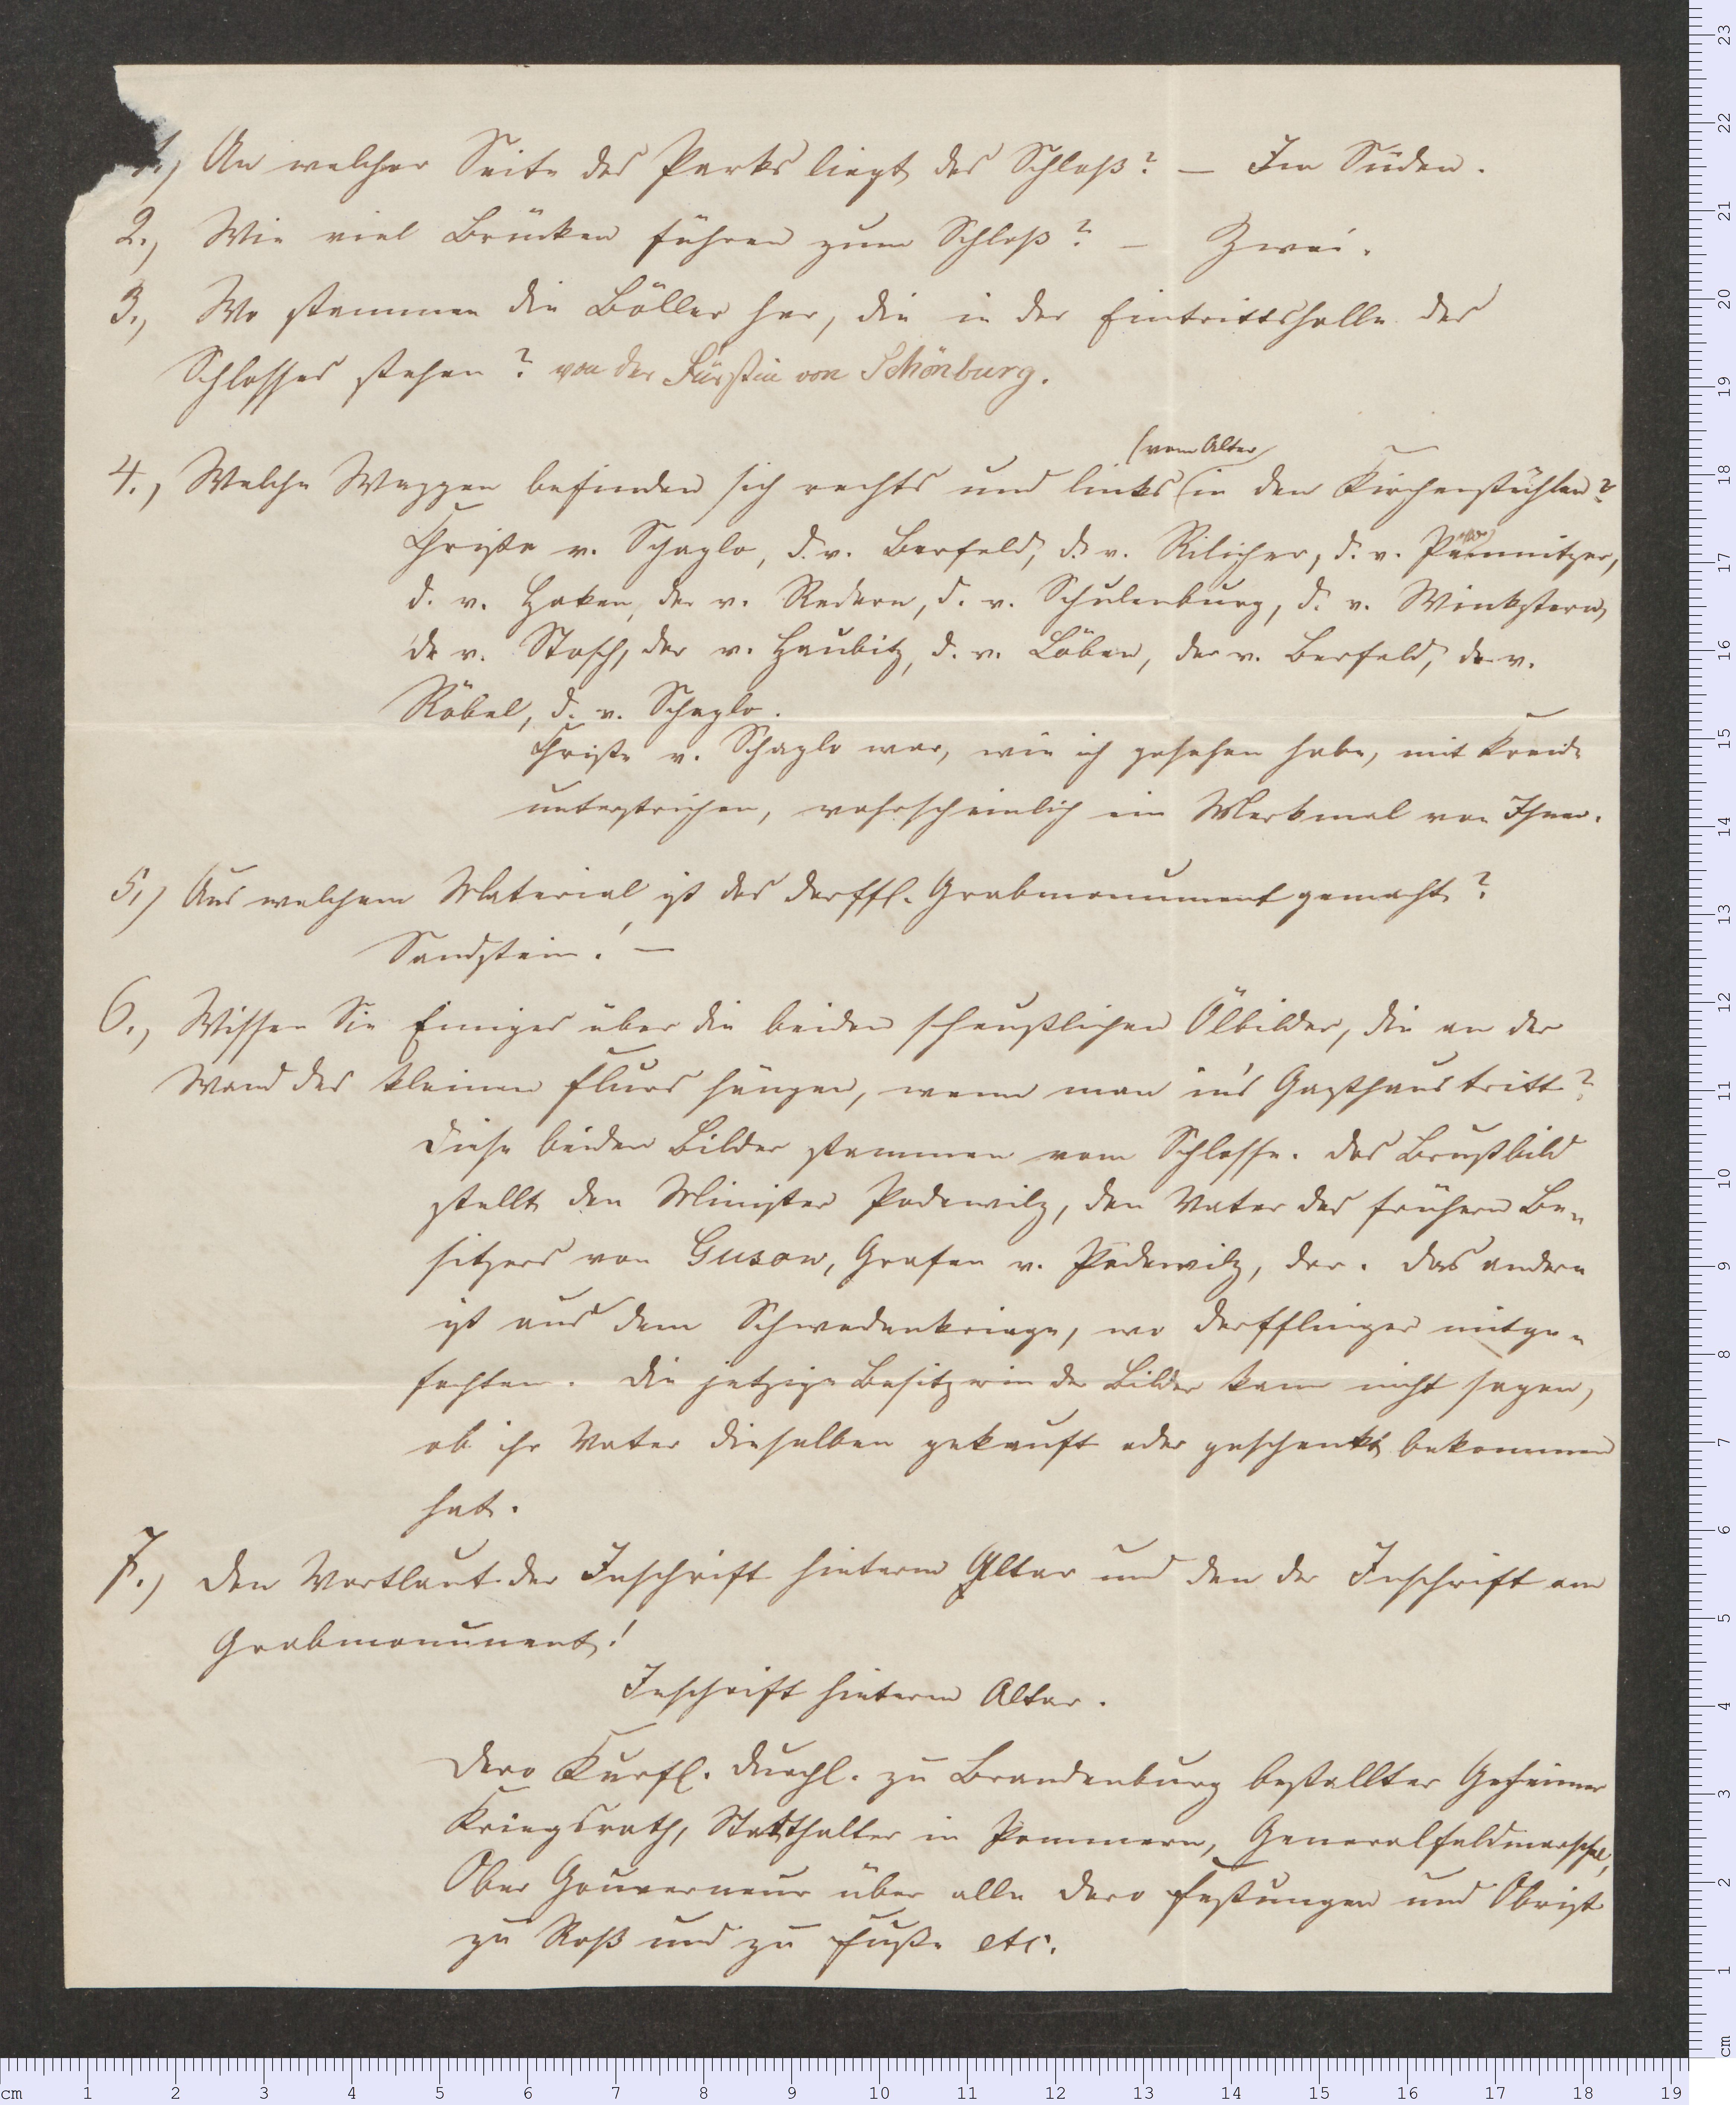 1.) An welcher Seite des Parks liegt das Schloß? — Im Süden.
2.) Wie viel Brücken führen zum Schloß? — Zwei.
3.) Wo stammen die Böller her, die in der Eintrittshalle des
Schlosses stehen? von der Fürstin von Schönburg.
(vom Altar)
4.) Welche Wappen befinden sich rechts und links in den Kirchenstühlen?
Christe v. Schaplo, d. v. Berfeld, d. v. Rilicher, d. v.
d. v. Haken, der v. Redern, d. v. Schulenburg, d. v. Winkstern,
de v. Stosch, der v. Haubitz, d. v. Löben, der v. Berfeld, der v.
Röbel, d. v. Schaplo.
Christe v. Schaplo war, wie ich gesehen habe, mit Kreide
unterstrichen, wahrscheinlich ein Merkmal von Ihnen.
5.) Aus welchem Material ist das Derffl. Grabmonument gemacht?
Sandstein! —
6.) Wissen Sie Einiges über die beiden scheußlichen Ölbilder, die an der
Wand des kleinen Flurs hängen, wenn man in's Gasthaus tritt?
Diese beiden Bilder stammen vom Schlosse. Das Brustbild
stellt den Minister Podewilz, den Vater des frühern Be-
sitzers von Gusow, Grafen v. Podewilz, dar. Das andere
ist aus dem Schwedenkriege, wo Derfflinger mitge-
fochten. Die jetzige Besitzerin der Bilder kann nicht sagen,
ob ihr Vater dieselben gekauft oder geschenkt bekommen
hat.
7.) Den Wortlaut der Inschrift hinterm Altar und den der Inschrift am
Grabmonument!
Inschrift hinterm Altar.
Dero Kurfl. Durchl. zu Brandenburg bestallter Geheimer
Kriegsrath, Statthalter in Pommern, Generalfeldmarschal,
Ober Gouverneur über alle Dero Festungen und Obrist
zu Roß und zu Fuße etc.